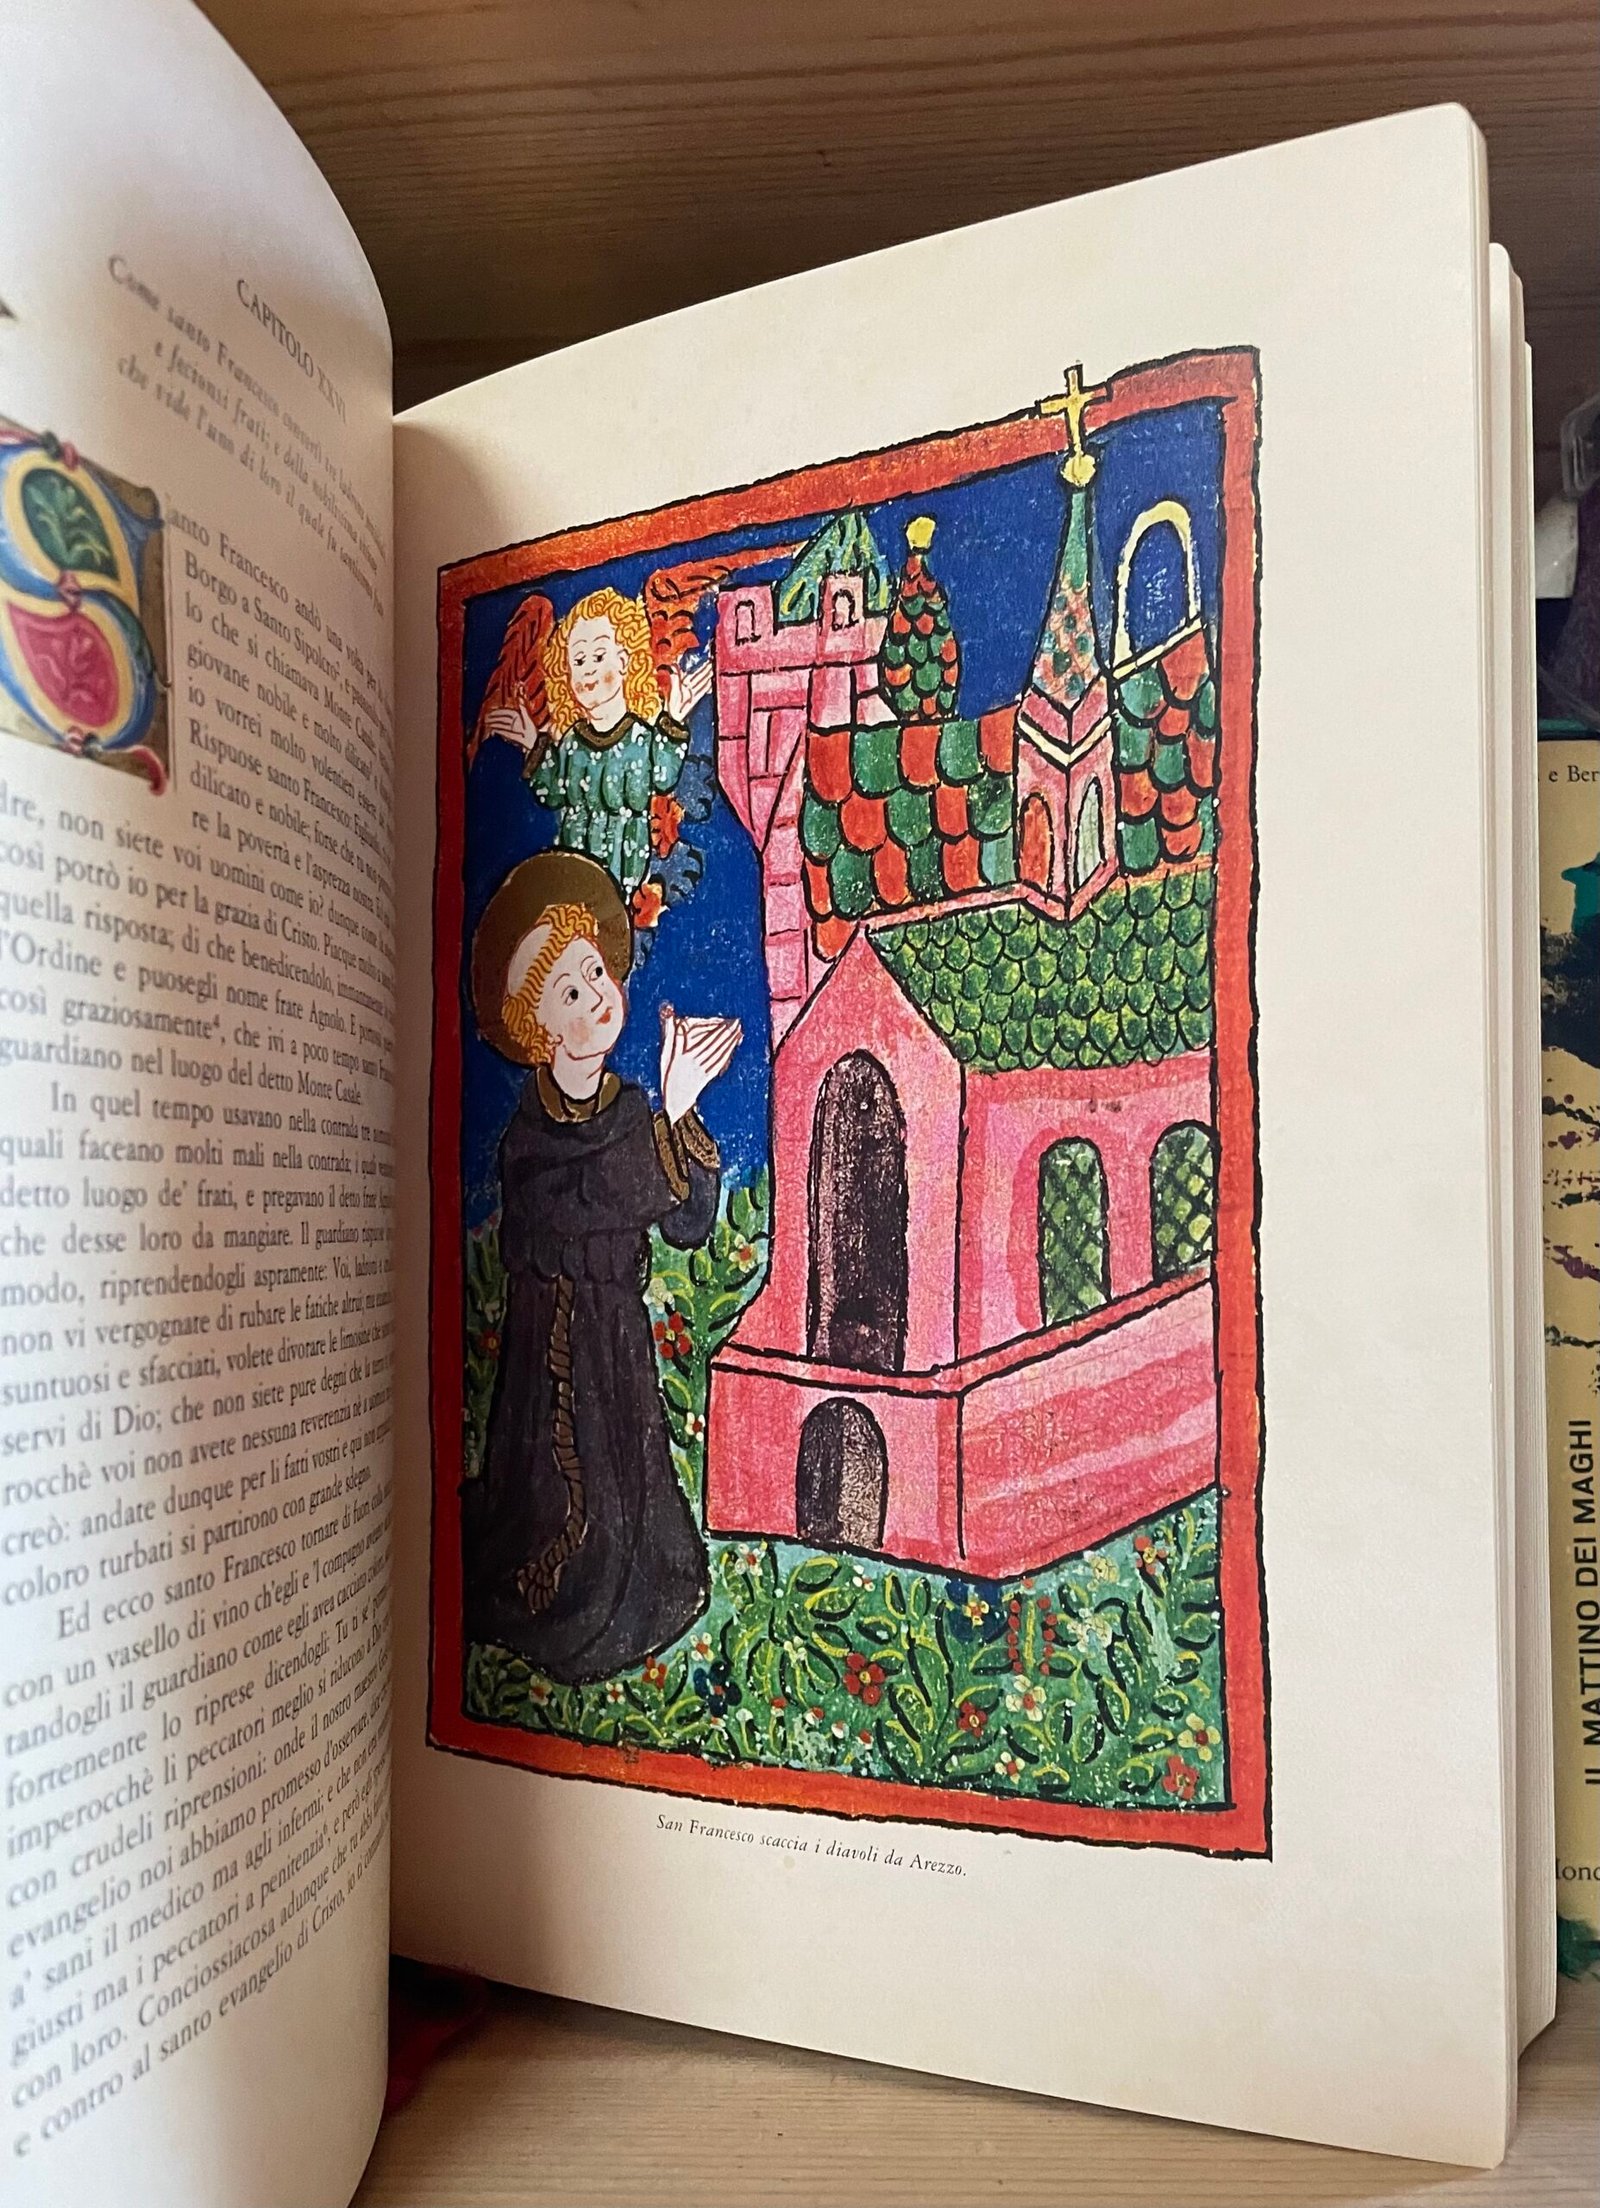 CAPITOLO XXVI
Come santo Francesco convertì tre ladroni
e fecionsi frati; e della nobilissima
che vide l'uno di loro il quale fu santissimo
anto Francesco andò una volta per
Borgo a Santo Sipolcro², e passando
lo che si chiamava Monte Casale
giovane nobile e molto dilicato
io vorrei molto volentieri essere
Rispuose santo Francesco:
dilicato e nobile; forse che tu non
re la povertà e l'asprezza nostra. Ed
dre, non siete voi uomini come io? dunque come
così potrò io per la grazia di Cristo. Piacque molto a
quella risposta; di che benedicendolo, immantanente
l'Ordine e puosegli nome frate Agnolo. E
così graziosamente⁴, che ivi a poco tempo santo
guardiano nel luogo del detto Monte Casale.
In quel tempo usavano nella contrada tre
quali faceano molti mali nella contrada; i quali
detto luogo de' frati, e pregavano il detto frate
che desse loro da mangiare. Il guardiano rispuose
modo, riprendendogli aspramente: Voi, ladroni e
non vi vergognate di rubare le fatiche altrui, ma
suntuosi e sfacciati, volete divorare le limosine che
servi di Dio; che non siete pure degni che la terra
rocchè voi non avete nessuna reverenzia nè a
creò: andate dunque per li fatti vostri e qui non
coloro turbati si partirono con grande sdegno.
Ed ecco santo Francesco tornare di fuori colla
con un vasello di vino ch'egli e 'l compagno
tandogli il guardiano come egli avea cacciato coloro,
fortemente lo riprese dicendogli: Tu ti se'
imperocchè li peccatori meglio si riducono a Dio
con crudeli riprensioni: onde il nostro maestro
evangelio noi abbiamo promesso d'osservare, dice
a' sani il medico ma agli infermi; e che non era
giusti ma i peccatori a penitenzia⁶; e però egli spesse
con loro. Conciossiacosa adunque che tu abbi
e contro al santo evangelio di Cristo, io ti
San Francesco scaccia i diavoli da Arezzo.
e Ber
IL MATTINO DEI MAGHI